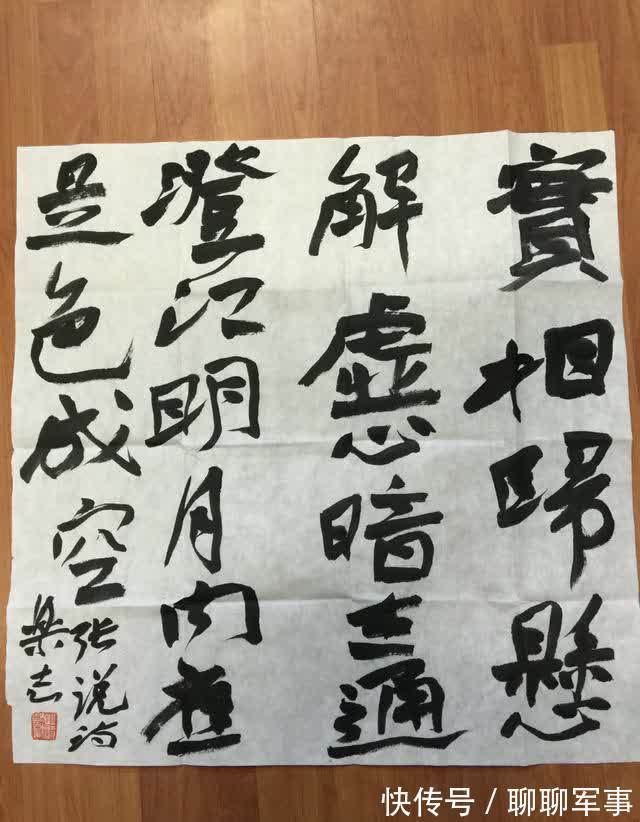 實相歸懸
解虛心暗在通
澄江明月内應
是色成空
张说詩
快传号/聊聊军事